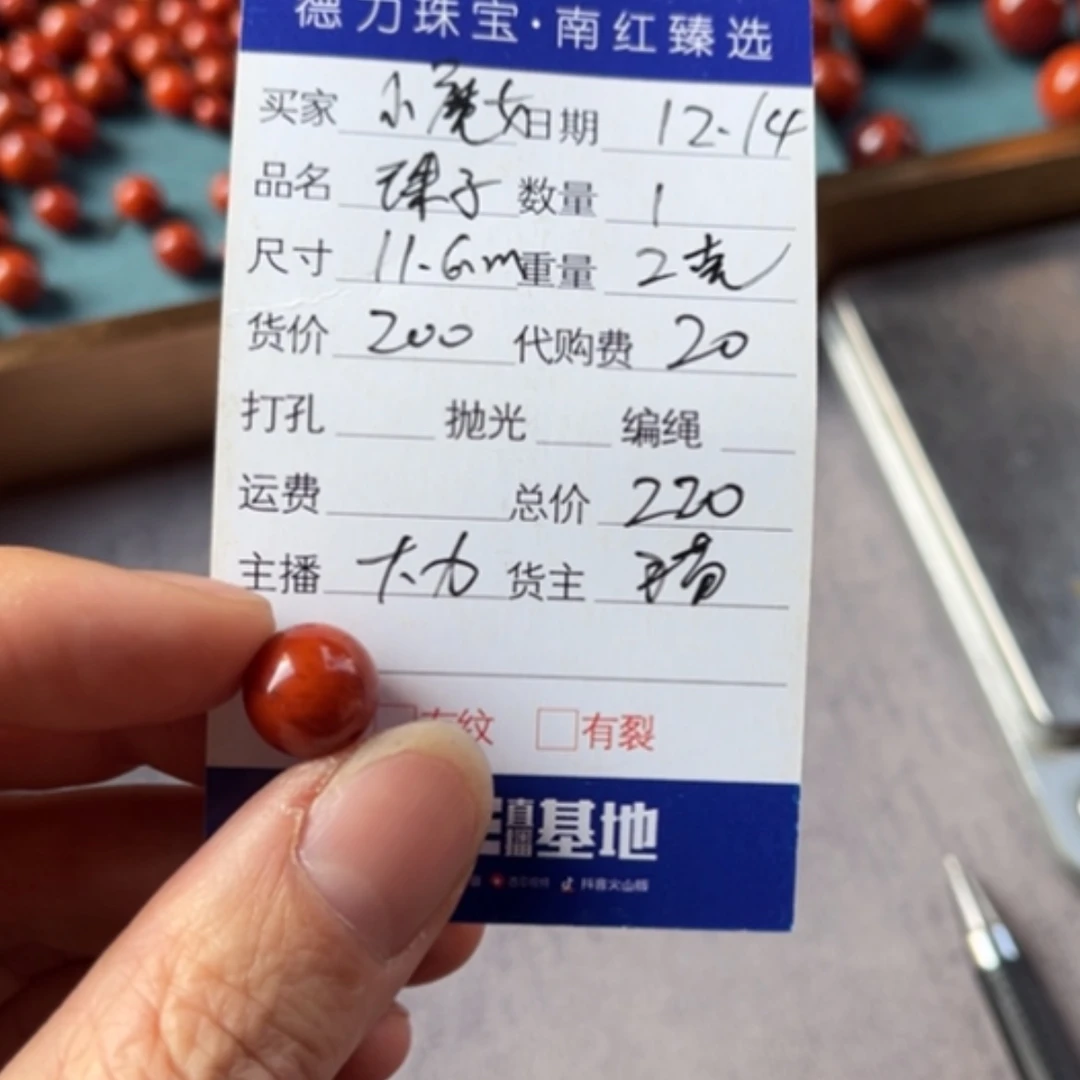 德力珠宝·南红臻选
买家 小魔女 日期 12.14
品名 珠子 数量 1
尺寸 11.6m 重量 2克
货价 200 代购费 20
打孔 抛光 编绳
运费 总价 220
主播 大力 货主
有纹 有裂
直播基地
抖音火山版